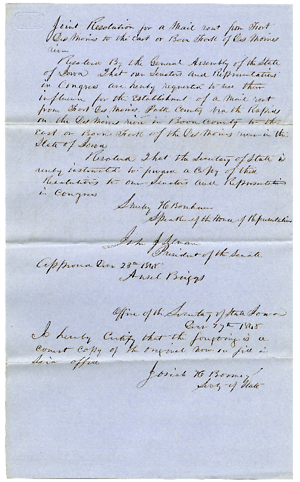 Joint Resolution for a Mail rout from Fort
Des Moines to the East or Boon Fork of Des Moines
river
Resolve By the General Assembly of the State
of Iowa That our Senators and Representatives
in Congress are hereby requested to use their
influence for the Establishment of a Mail rout
from Fort Des Moines Polk County via the Rapids
on the Des Moines river in Boon County to the
East or Boon Fork of the Des Moines river in the
State of Iowa
Resolved That the Secretary of State is
hereby instructed to forward a Copy of this
Resolutions to our Senators and Representatives
in Congress
Smiley H Bonham
Speaker of the House of Representatives
John J Selman
President of the Senate
Approved Decr 1848
Ansel Briggs
Office of the Secretary of State Iowa
Decr 27th 1848
I hereby Certify that the foregoing is a
correct copy of the original now on file in
office
Josiah H Bonney
Secty of State